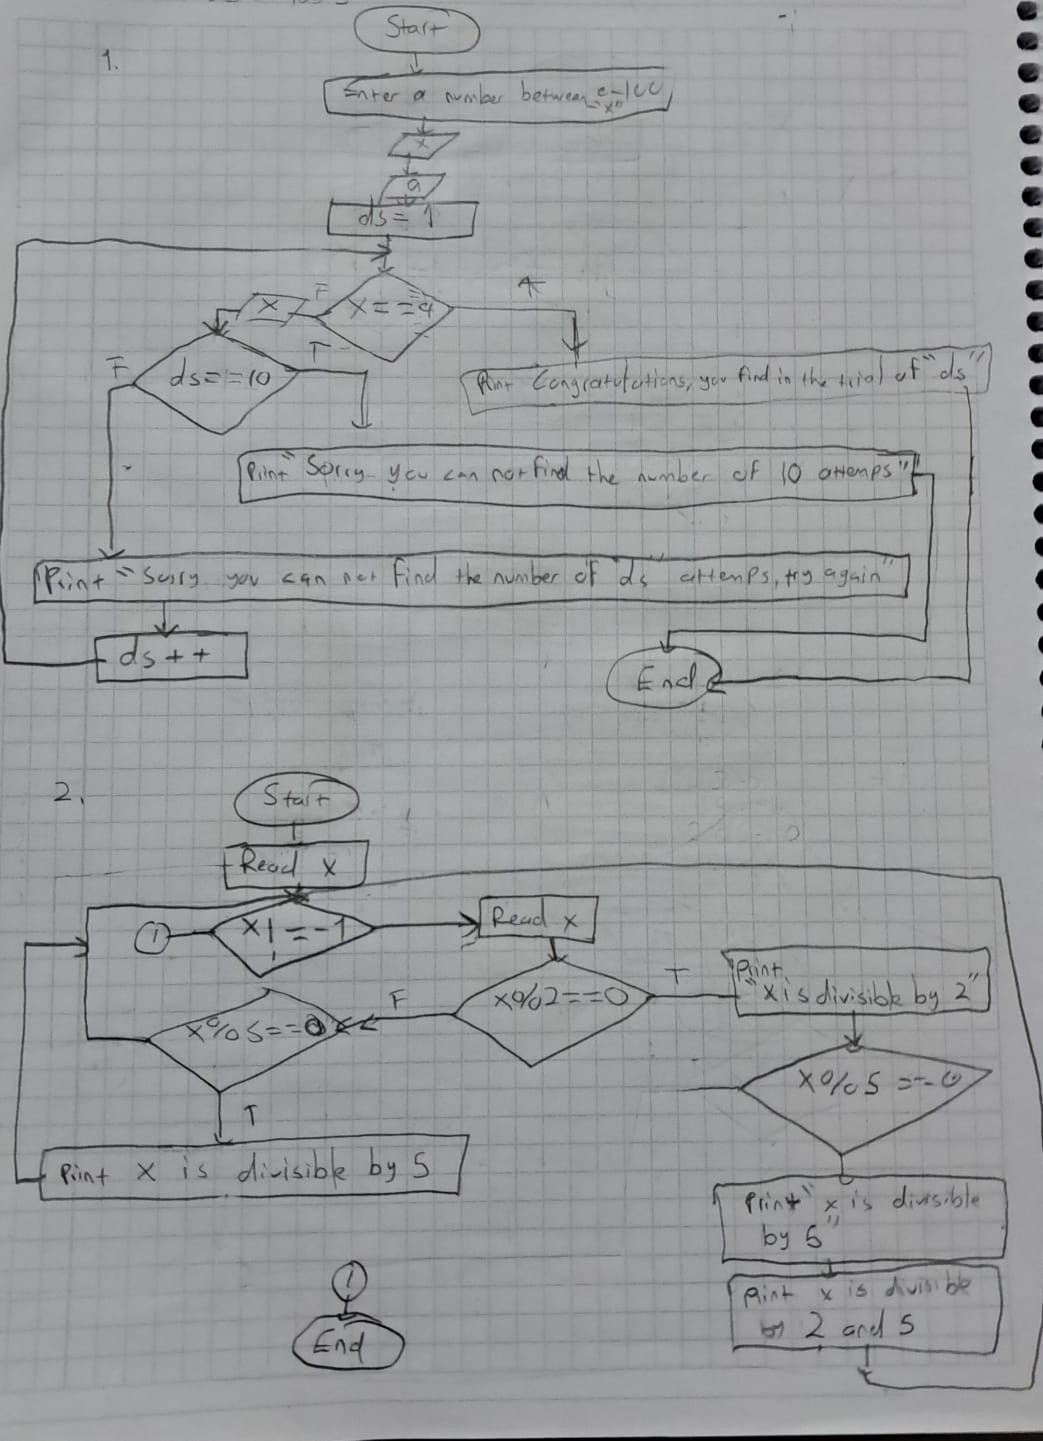 1.
Start
Enter a number between 0-100
"x"
x
a
ds = 1
x == a
F
x
T
ds == 10
F
Print Congratulations, you find in the trial of "ds"
Print "Sorry you can not find the number of 10 attemps"
Print "Sorry you can not find the number of "ds" attemps, try again"
ds++
End
2.
Start
Read x
x != -1
1
Read x
x%2==0
T
Print
"x is divisible by 2"
F
x%5==0
x%5==0
T
Print x is divisible by 5
Print "x is divisible
by 5"
Print x is divisible
by 2 and 5
1
End